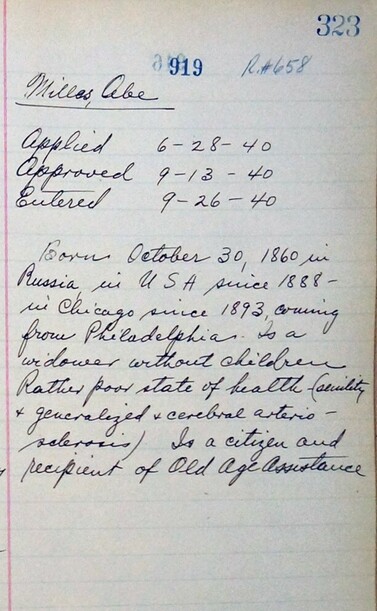 323
919 R.#658
Miller, Abe
Applied 6-28-40
Approved 9-13-40
Entered 9-26-40
Born October 30, 1860 in
Russia, in USA since 1888-
in Chicago since 1893, coming
from Philadelphia. Is a
widower without children
Rather poor state of health (senility
& generalized & cerebral arterio-
sclerosis) Is a citizen and
recipient of Old Age Assistance